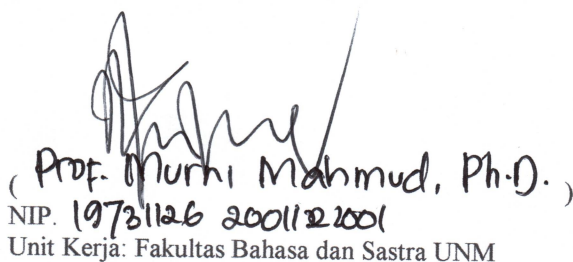 ( Prof. Murni Mahmud, Ph.D. )
NIP. 19731126 200112 2001
Unit Kerja: Fakultas Bahasa dan Sastra UNM